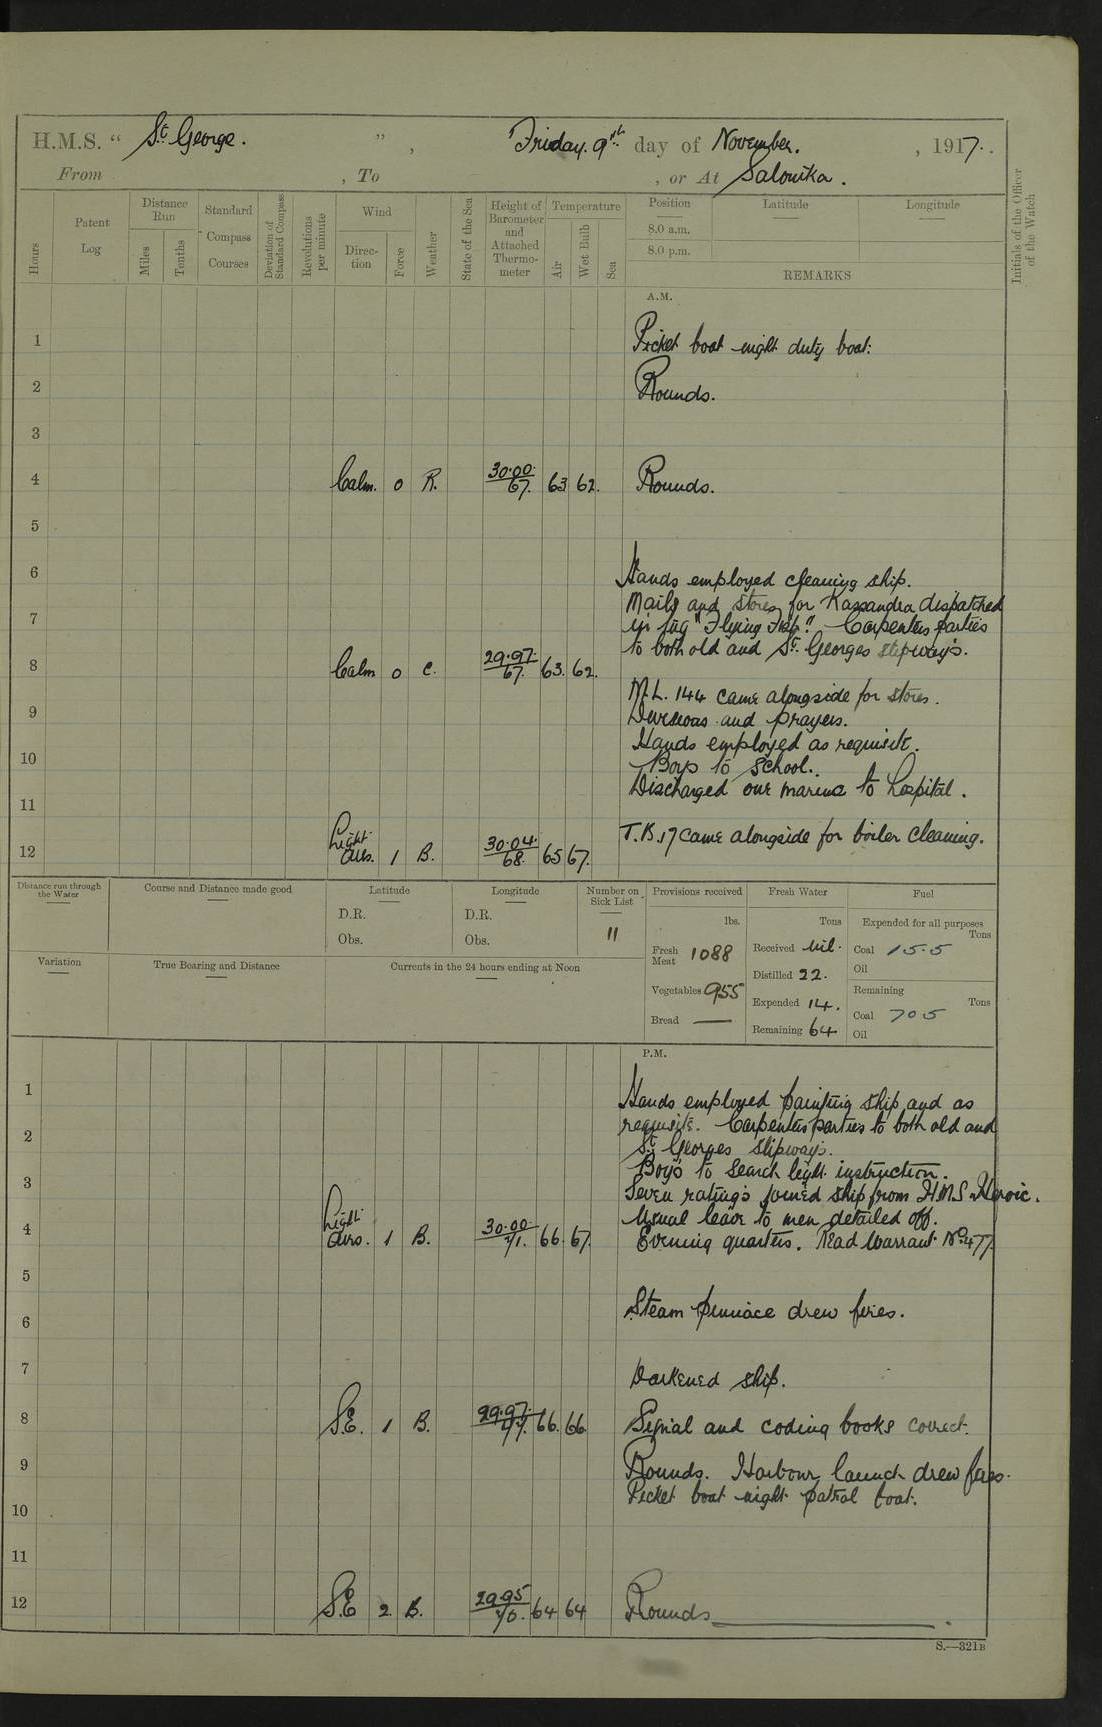 H.M.S. “ St. George. ”, Friday. 9th day of November. , 1917.
From , To , or At Salonika.
Hours
Patent Log
Distance Run
Miles
Tenths
Standard Compass Courses
Deviation of Standard Compass
Revolutions per minute
Wind
Direction
Force
Weather
State of the Sea
Height of Barometer and Attached Thermometer
Temperature
Air
Wet Bulb
Sea
Position Latitude Longitude
8.0 a.m.
8.0 p.m.
REMARKS
Initials of the Officer of the Watch
A.M.
1 Picket boat night duty boat.
2 Rounds.
3
4 Calm. 0 R. 30.00. 67. 63 62. Rounds.
5
6 Hands employed cleaning ship.
Mails and stores for Kassandra dispatched
7 in tug "Flying ." Carpenters parties
to both old and St. Georges slipways.
8 Calm 0 C. 29.97. 67. 63. 62.
M.L. 144 came alongside for stores.
9 Divisions and prayers.
Hands employed as requisite.
10 Boys to School.
Discharged one marine to hospital.
11
12 Light airs. 1 B. 30.04. 68. 65 67. T.B. 17 came alongside for boiler cleaning.
Distance run through the Water
Course and Distance made good
Latitude
D.R.
Obs.
Longitude
D.R.
Obs.
Number on Sick List
11
Provisions received
lbs.
Fresh Meat 1088
Vegetables 955
Bread —
Fresh Water
Tons
Received Nil.
Distilled 22.
Expended 14.
Remaining 64
Fuel
Expended for all purposes
Tons
Coal 15.5
Oil
Remaining
Tons
Coal 705
Oil
Variation
True Bearing and Distance
Currents in the 24 hours ending at Noon
P.M.
1 Hands employed painting ship and as
requisite. Carpenters parties to both old and
2 St. Georges slipways.
Boys to Search light instruction.
3 Seven ratings joined ship from H.M.S. Heroic.
Usual leave to men detailed off.
4 Light airs. 1 B. 30.00 71. 66. 67. Evening quarters. Read Warrant No. 477
5
6 Steam pinnace drew fires.
7 Darkened ship.
8 S.E. 1 B. 29.97. 66. 66 Signal and coding books correct.
9 Rounds. Harbour launch drew fires.
Picket boat night patrol boat.
10
11
12 S.E 2 B. 29.95 70. 64 64 Rounds
S.—321B